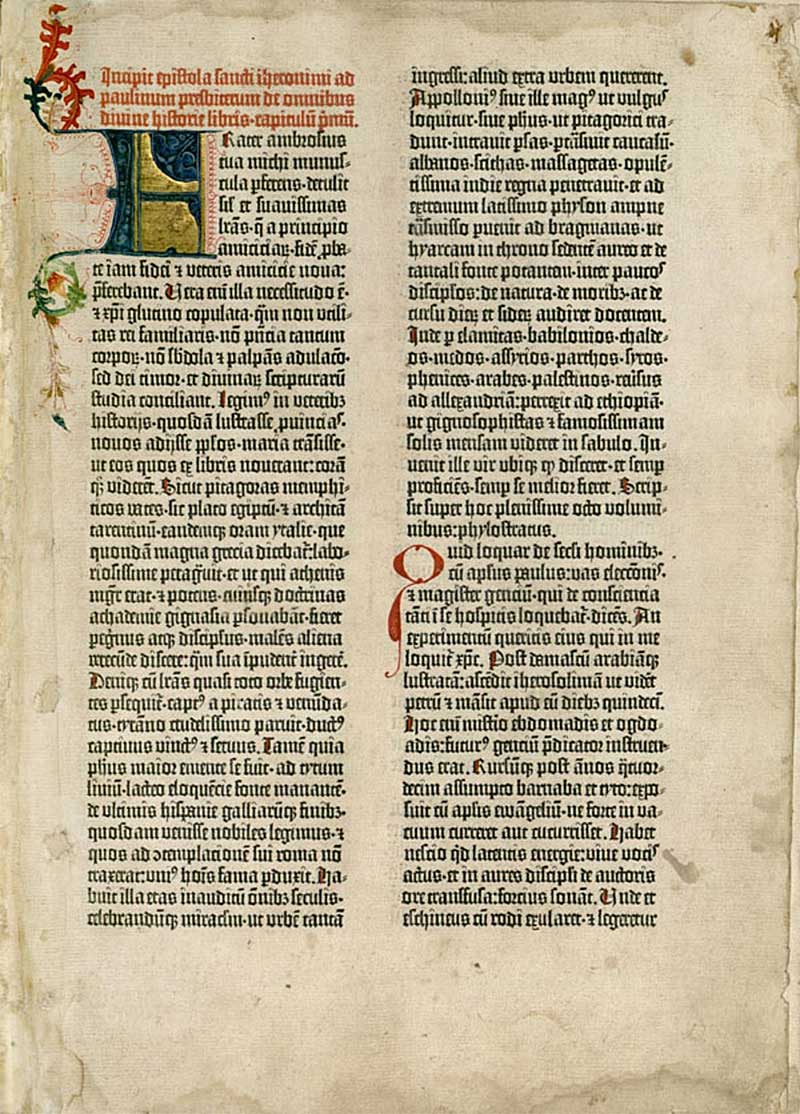 Incipit epistola sancti iheronimi ad
paulinum presbiterum de omnibus
divine historie libris·capitulū p̄mū.
FRater ambrosius
tua michi munus-
cula pferens·detulit
sił et suavissimas
lrās·q̄ a principio
amiciciaꝝ·fidē ꝓba-
te iam fidei ⁊ veteris amicicie nova:
pferebant. Vera em̄ illa necessitudo ē·
⁊ xp̄i glutino copulata·qm̄ non utili-
tas rei familiaris·nō pn̄tia tantum
corpoꝝ·nō sbdola ⁊ palpās adulaco·
sed dei timor·et divinaꝝ scripturarū
studia conciliant. Legimꝰ in veteribꝫ
historijs·quosdā lustrasse ꝓvinciaˢ·
novos adijsse pplos·maria trāsisse·
ut eos quos ex libris noverant:corā
qꝫ viderēt. Sicut pitagoras memphi-
ticos vates·sic plato egiptū·⁊ architā
tarentinū·eandemqꝫ oram ytalie·que
quondā magna grecia dicebat̄:labo-
riosissime peragvit·et ut qui athenis
mgr̄ erat·⁊ potens·cuiusqꝫ doctrinas
achademie gignasia psonabāt·fieret
pegrinus atqꝫ discipulus·malēs aliena
verecūde discere:qm̄ sua īpudent̄ ingerē.
Deniqꝫ cū lrās quasi toto orbe fugien-
tes psequit̄·captꝰ a piratis ⁊ venūda-
tus·tyrāno crudelissimo paruit·ductꝰ
captivus vinctꝰ ⁊ servus. Tamē quia
phūs maior emente se fuit·ad tytum
liviū·lacteo eloquēcie fonte manantē·
de ultimis hispanie galliarūqꝫ finibꝫ·
quosdam venisse nobiles legimus·⁊
quos ad ɔtemplationē sui roma nō
traxerat:uniꝰ hoīs fama pduxit. Ha-
buit illa etas inauditū ōnibꝫ seculis·
celebrandūqꝫ miraclm·ut urbē tantā
ingressi:aliud extra urbem quererent.
Appolloniꝰ sive ille magꝰ ut vulgꝰ
loquitur·sive phus·ut pitagorici tra-
dunt·intravit psas·ptrāsivit caucasū·
albanos·scithas·massagetas·opulē-
tissima indie regna penetravit·et ad
extremum latissimo physon ampne
trāsmisso pvenit ad bragmanas·ut
hyarcam in throno sedentē aureo et de
tantali fonte potantem·inter paucoˢ
discipulos:de natura·de moribꝫ·ac de
cursu dieꝝ et sideꝝ audiret docentem.
Inde p elamitas·babilonios·chalde-
os·medos·assyrios·parthos·syros·
phenices·arabes·palestinos·reversus
ad allexandriā:perrexit ad ethiopiā·
ut gignosophistas ⁊ famosissimam
solis mensam videret in sabulo. In-
venit ille vir ubiqꝫ qꝫ disceret·et semp
proficiēs·semp se melior fieret. Scrip-
sit super hoc plenissime octo volumi-
nibus:phylostratus.
Quid loquar de secli hominibꝫ·
cū aplus paulus:vas eleccōnis·
⁊ magister genciū·qui de consciencia
tāti ī se hospitis loquebat̄·dicēs. An
experimentū queritis eius qui in me
loquit̄ xpc̄. Post damascū arabiāqꝫ
lustratā:ascēdit iherosolimā ut videt
petrū ⁊ māsit apud eū diebꝫ quindeci.
Hoc em̄ misterio ebdomadis et ogdo-
adis:futurꝰ genciū pdicator instruen-
dus erat. Rursūqꝫ post ānos qtuor-
decim assumpto barnaba et tyto:expo-
suit cū aplis ewāgeliū·ne forte in va-
cuum curreret aut cucurrisset. Habet
nescio qd latentis energie:vive vociˢ
actus·et in aures discipuli de auctoris
ore transfusa:forcius sonāt. Unde et
eschineus cū rodi exularet·⁊ legeretur